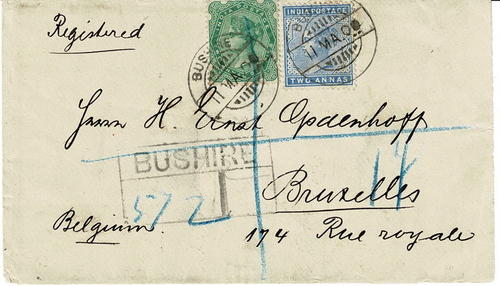 Registered
INDIA POSTAGE
TWO ANNAS
BUSHIRE
11 MA
11 MA 00
Herrn H. Ernst Opdenhoff
BUSHIRE
572
14
Bruxelles
Belgium
174 Rue royale